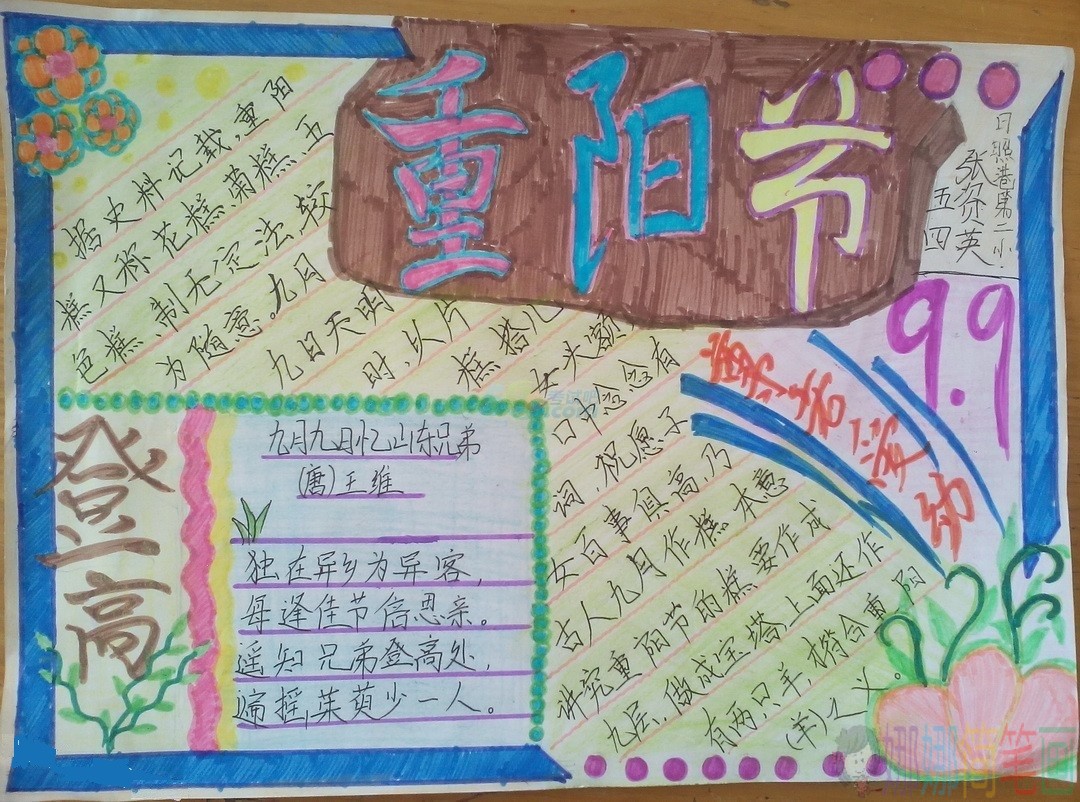 重阳节
日照港第二小.
五四
9.9
尊老爱幼
据史料记载,重阳
糕又称花糕、菊糕、五
色糕,制无定法,较
为随意。九月
九日天明
时,以片
糕搭儿
女头额,
口中念念有
词,祝愿子
女百事俱高,乃
古人九月作糕本意
讲究重阳节的糕要作成
九层,做成宝塔上面还作
有两只羊,合重阳
(羊)之义。
登高
九月九日忆山东兄弟
(唐)王维
独在异乡为异客,
每逢佳节倍思亲。
遥知兄弟登高处,
遍摇,茱萸少一人。
娜娜简笔画